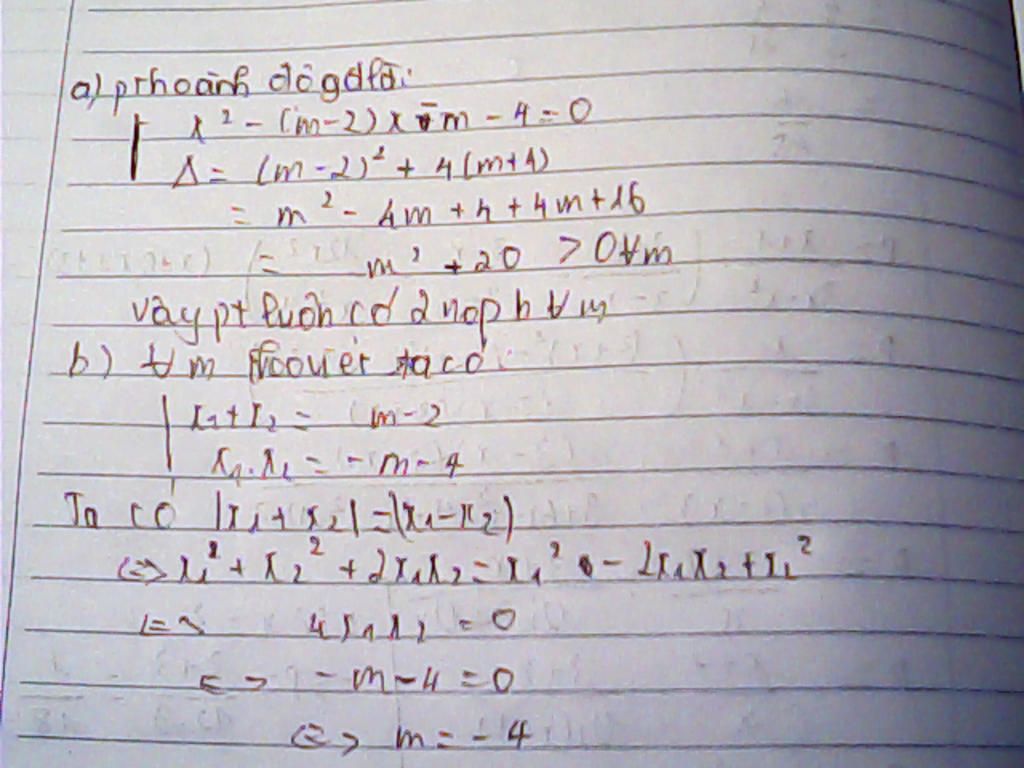 a) pt hoành độ gđ là:
x² - (m-2)x - m - 4 = 0
Δ = (m-2)² + 4(m+4)
= m² - 4m + 4 + 4m + 16
= m² + 20 > 0 ∀m
vậy pt luôn có 2 no pb ∀m
b) ∀m theo viet ta có
x₁+x₂ = m-2
x₁.x₂ = -m-4
Ta có |x₁+x₂| = |x₁-x₂|
<=> x₁² + x₂² + 2x₁x₂ = x₁² - 2x₁x₂ + x₂²
<=> 4x₁x₂ = 0
<=> -m-4 = 0
<=> m = -4